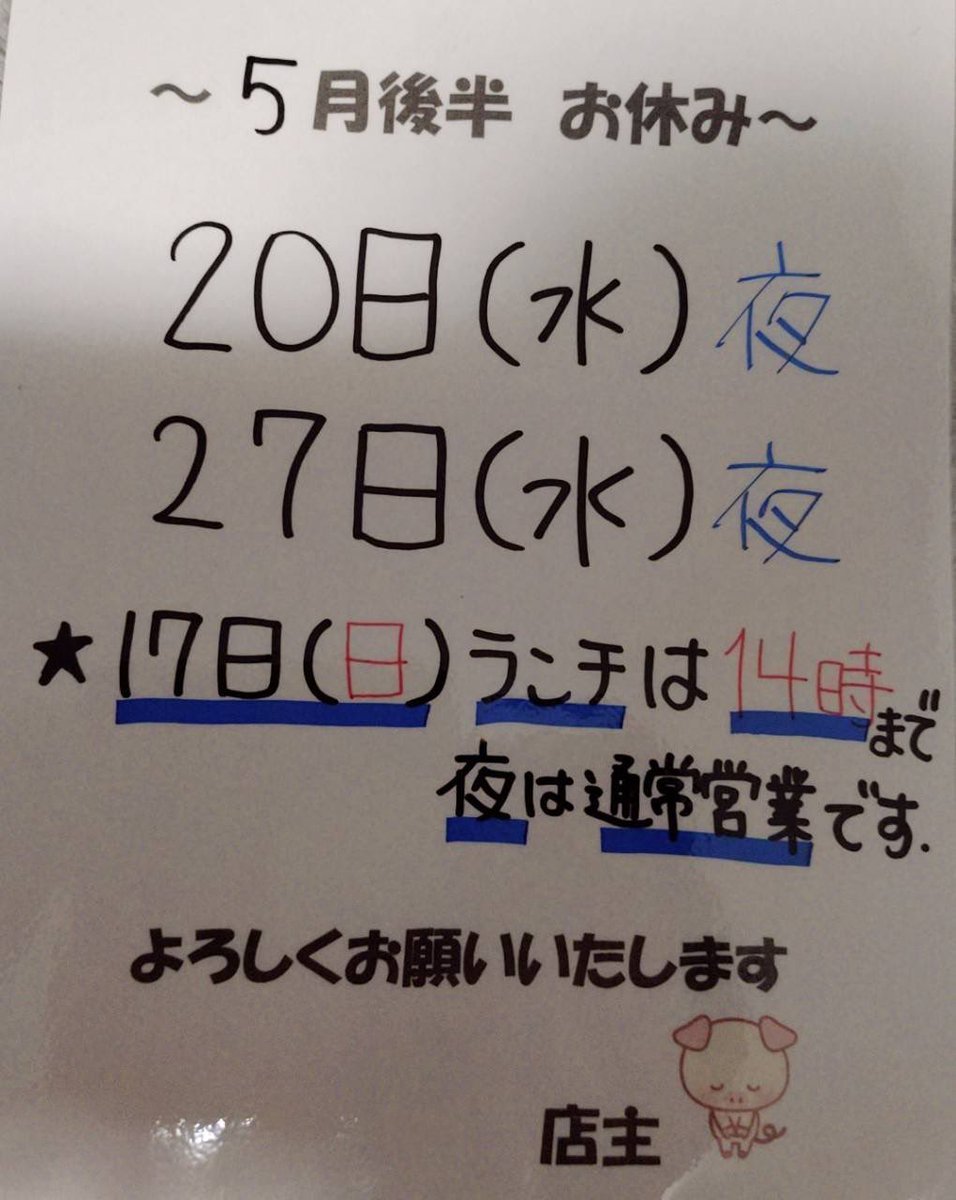 ～5月後半 お休み～
20日(水)夜
27日(水)夜
★17日(日)ランチは14時まで
夜は通常営業です.
よろしくお願いいたします
店主